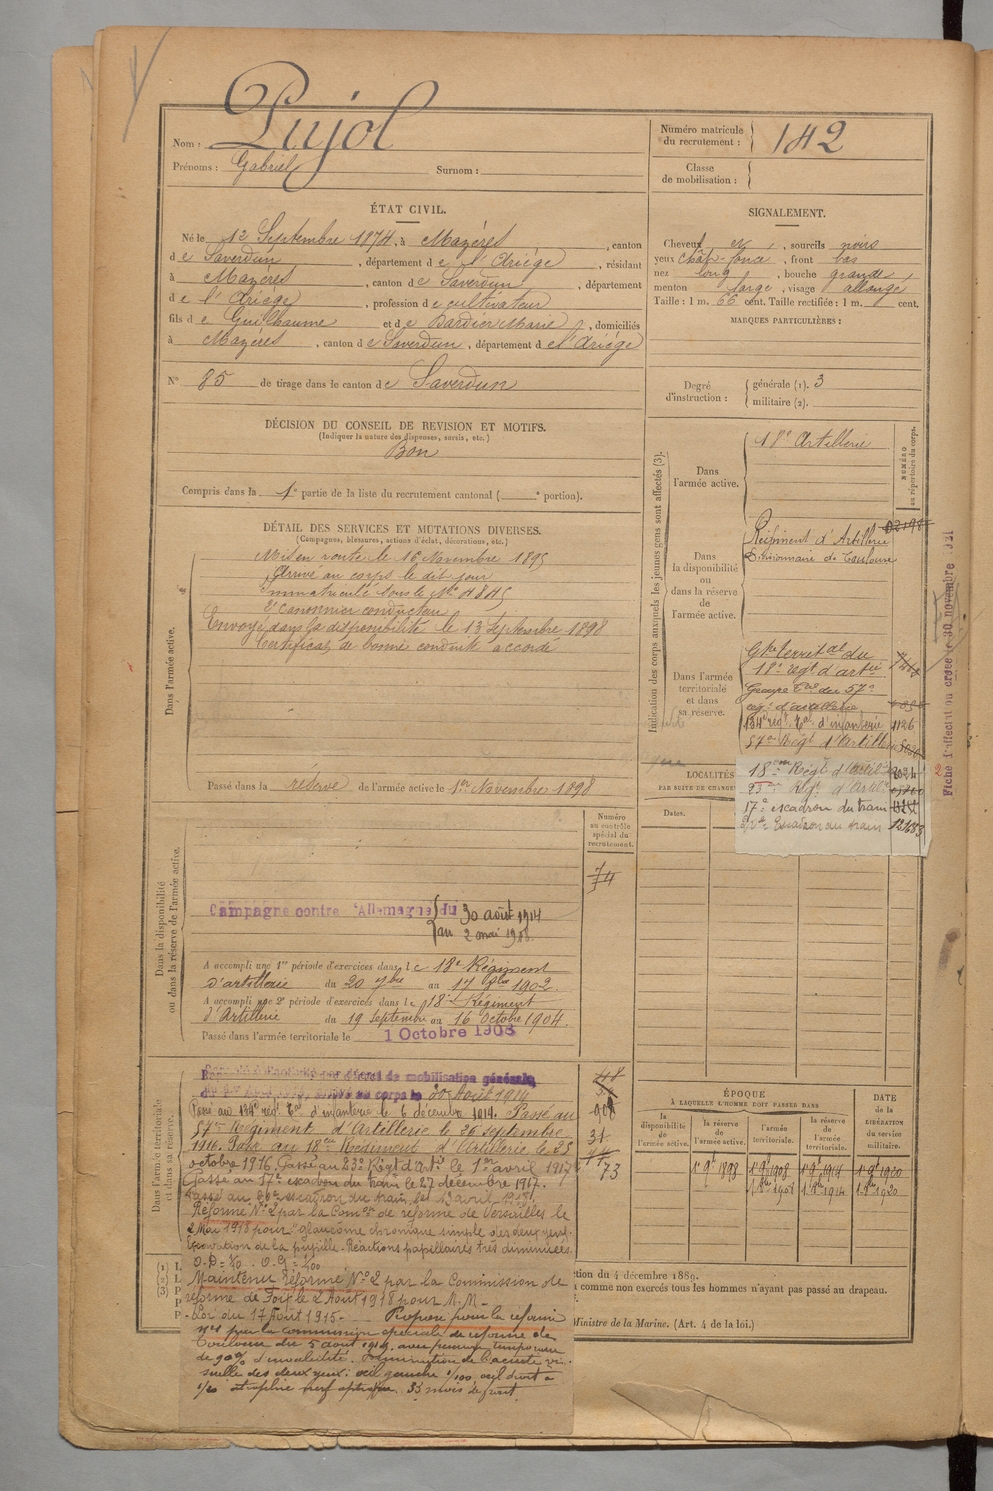 Pujol
Nom :
Prénoms : Gabriel Surnom :
Numéro matricule du recrutement : 142
Classe de mobilisation :
ÉTAT CIVIL.
Né le 12 Septembre 1874, à Mazéres, canton
de Saverdun, département de l'Ariége, résidant
à Mazéres, canton de Saverdun, département
de l'Ariége, profession de cultivateur
fils de Guilhaume et de Bardier Marie, domiciliés
à Mazéres, canton de Saverdun, département de l'Ariége
N° 85 de tirage dans le canton de Saverdun
SIGNALEMENT.
Cheveux et, sourcils noirs
yeux chât-foncé, front bas
nez long, bouche grande
menton large, visage allongé
Taille : 1 m. 66 cent. Taille rectifiée : 1 m. cent.
MARQUES PARTICULIÈRES :
Degré d'instruction : générale (1). 3
militaire (2).
DÉCISION DU CONSEIL DE REVISION ET MOTIFS.
(Indiquer la nature des dispenses, sursis, etc.)
Bon
Compris dans la 1e partie de la liste du recrutement cantonal ( e portion).
DÉTAIL DES SERVICES ET MUTATIONS DIVERSES.
(Campagnes, blessures, actions d'éclat, décorations, etc.)
Dans l'armée active.
Mis en route le 16 Novembre 1895
Arrivé au corps le dit jour
immatriculé sous le No 4845
2e Canonnier conducteur
Envoyé dans la disponibilité le 13 Septembre 1898
Certificat de bonne conduite accordé
Passé dans la réserve de l'armée active le 1er Novembre 1898
Indication des corps auxquels les jeunes gens sont affectés (3).
NUMÉRO au répertoire du corps.
Dans l'armée active.
18e Artillerie
Dans la disponibilité ou dans la réserve de l'armée active.
Régiment d'Artillerie
Divisionnaire de Toulouse
Dans l'armée territoriale et dans sa réserve.
Gpe territ al du
18e regt d'artie
Groupe Tal du 57e
reg. d'artillerie
134e régt Tal d'infanterie 1126
57e Régt d'Artill
18em Régt d'Artil
23e Régt d'Artil
17e escadron du train
Escadron du train 12683
Fiche d'affectation créée le 30 novembre 1921
LOCALITÉS
PAR SUITE DE CHANGE
Dates.
Dans la disponibilité ou dans la réserve de l'armée active.
Numéro au contrôle spécial du recrutement.
74
Campagne contre l'Allemagne du 30 août 1914
au 2 mai 1918
A accompli une 1re période d'exercices dans le 18e Régiment
d'artillerie du 20 7bre au 17 8bre 1902.
A accompli une 2e période d'exercices dans le 18e Régiment
d'Artillerie du 19 septembre au 16 octobre 1904.
Passé dans l'armée territoriale le 1 Octobre 1908
Dans l'armée territoriale et dans sa réserve.
décret de mobilisation générale
au corps le 30 Août 1914
Passé au 134e rég. Tal d'infanterie le 6 décembre 1914. Passé au
57e Régiment d'Artillerie le 26 septembre
1916. Passé au 18eme Régiment d'Artillerie le 23
octobre 1916. Passé au 23e Régt d'Art. le 1er avril 1917
Passé au 17e escadron du train le 27 décembre 1917.
Passé au escadron du train le avril 1918
Réformé No 2 par la Comon de réforme de Versailles le
2 Mai 1918 pour "glaucome chronique simple des deux yeux.
Excavation de la pupille. Réactions papillaires très diminuées.
Maintenu Réformé No 2 par la Commission de
réforme de Foix le 2 Août 1918 pour M.M -
- Loi du 17 Août 1915 - Proposé pour la réforme
no 1 par la commission spéciale de réforme de
Toulouse du 5 août 1919, avec pension temporaire
de 90% d'invalidité. Diminution de l'acuité vi-
suelle des deux yeux : œil gauche 1/100, œil droit à
atrophie nerf optique. 33 mois de front
48
31
73
ÉPOQUE
À LAQUELLE L'HOMME DOIT PASSER DANS
la disponibilité de l'armée active.
la réserve de l'armée active.
l'armée territoriale.
la réserve de l'armée territoriale.
DATE de la LIBÉRATION du service militaire.
1er 9bre 1898
1er 9bre 1908
1er 9bre 1914
1er 9bre 1920
1er 8bre 1908
1er 8bre 1914
1er 8bre 1920
(1) L
(2) L
(3) P
ction du 4 décembre 1889.
comme non exercés tous les hommes n'ayant pas passé au drapeau.
Ministre de la Marine. (Art. 4 de la loi.)